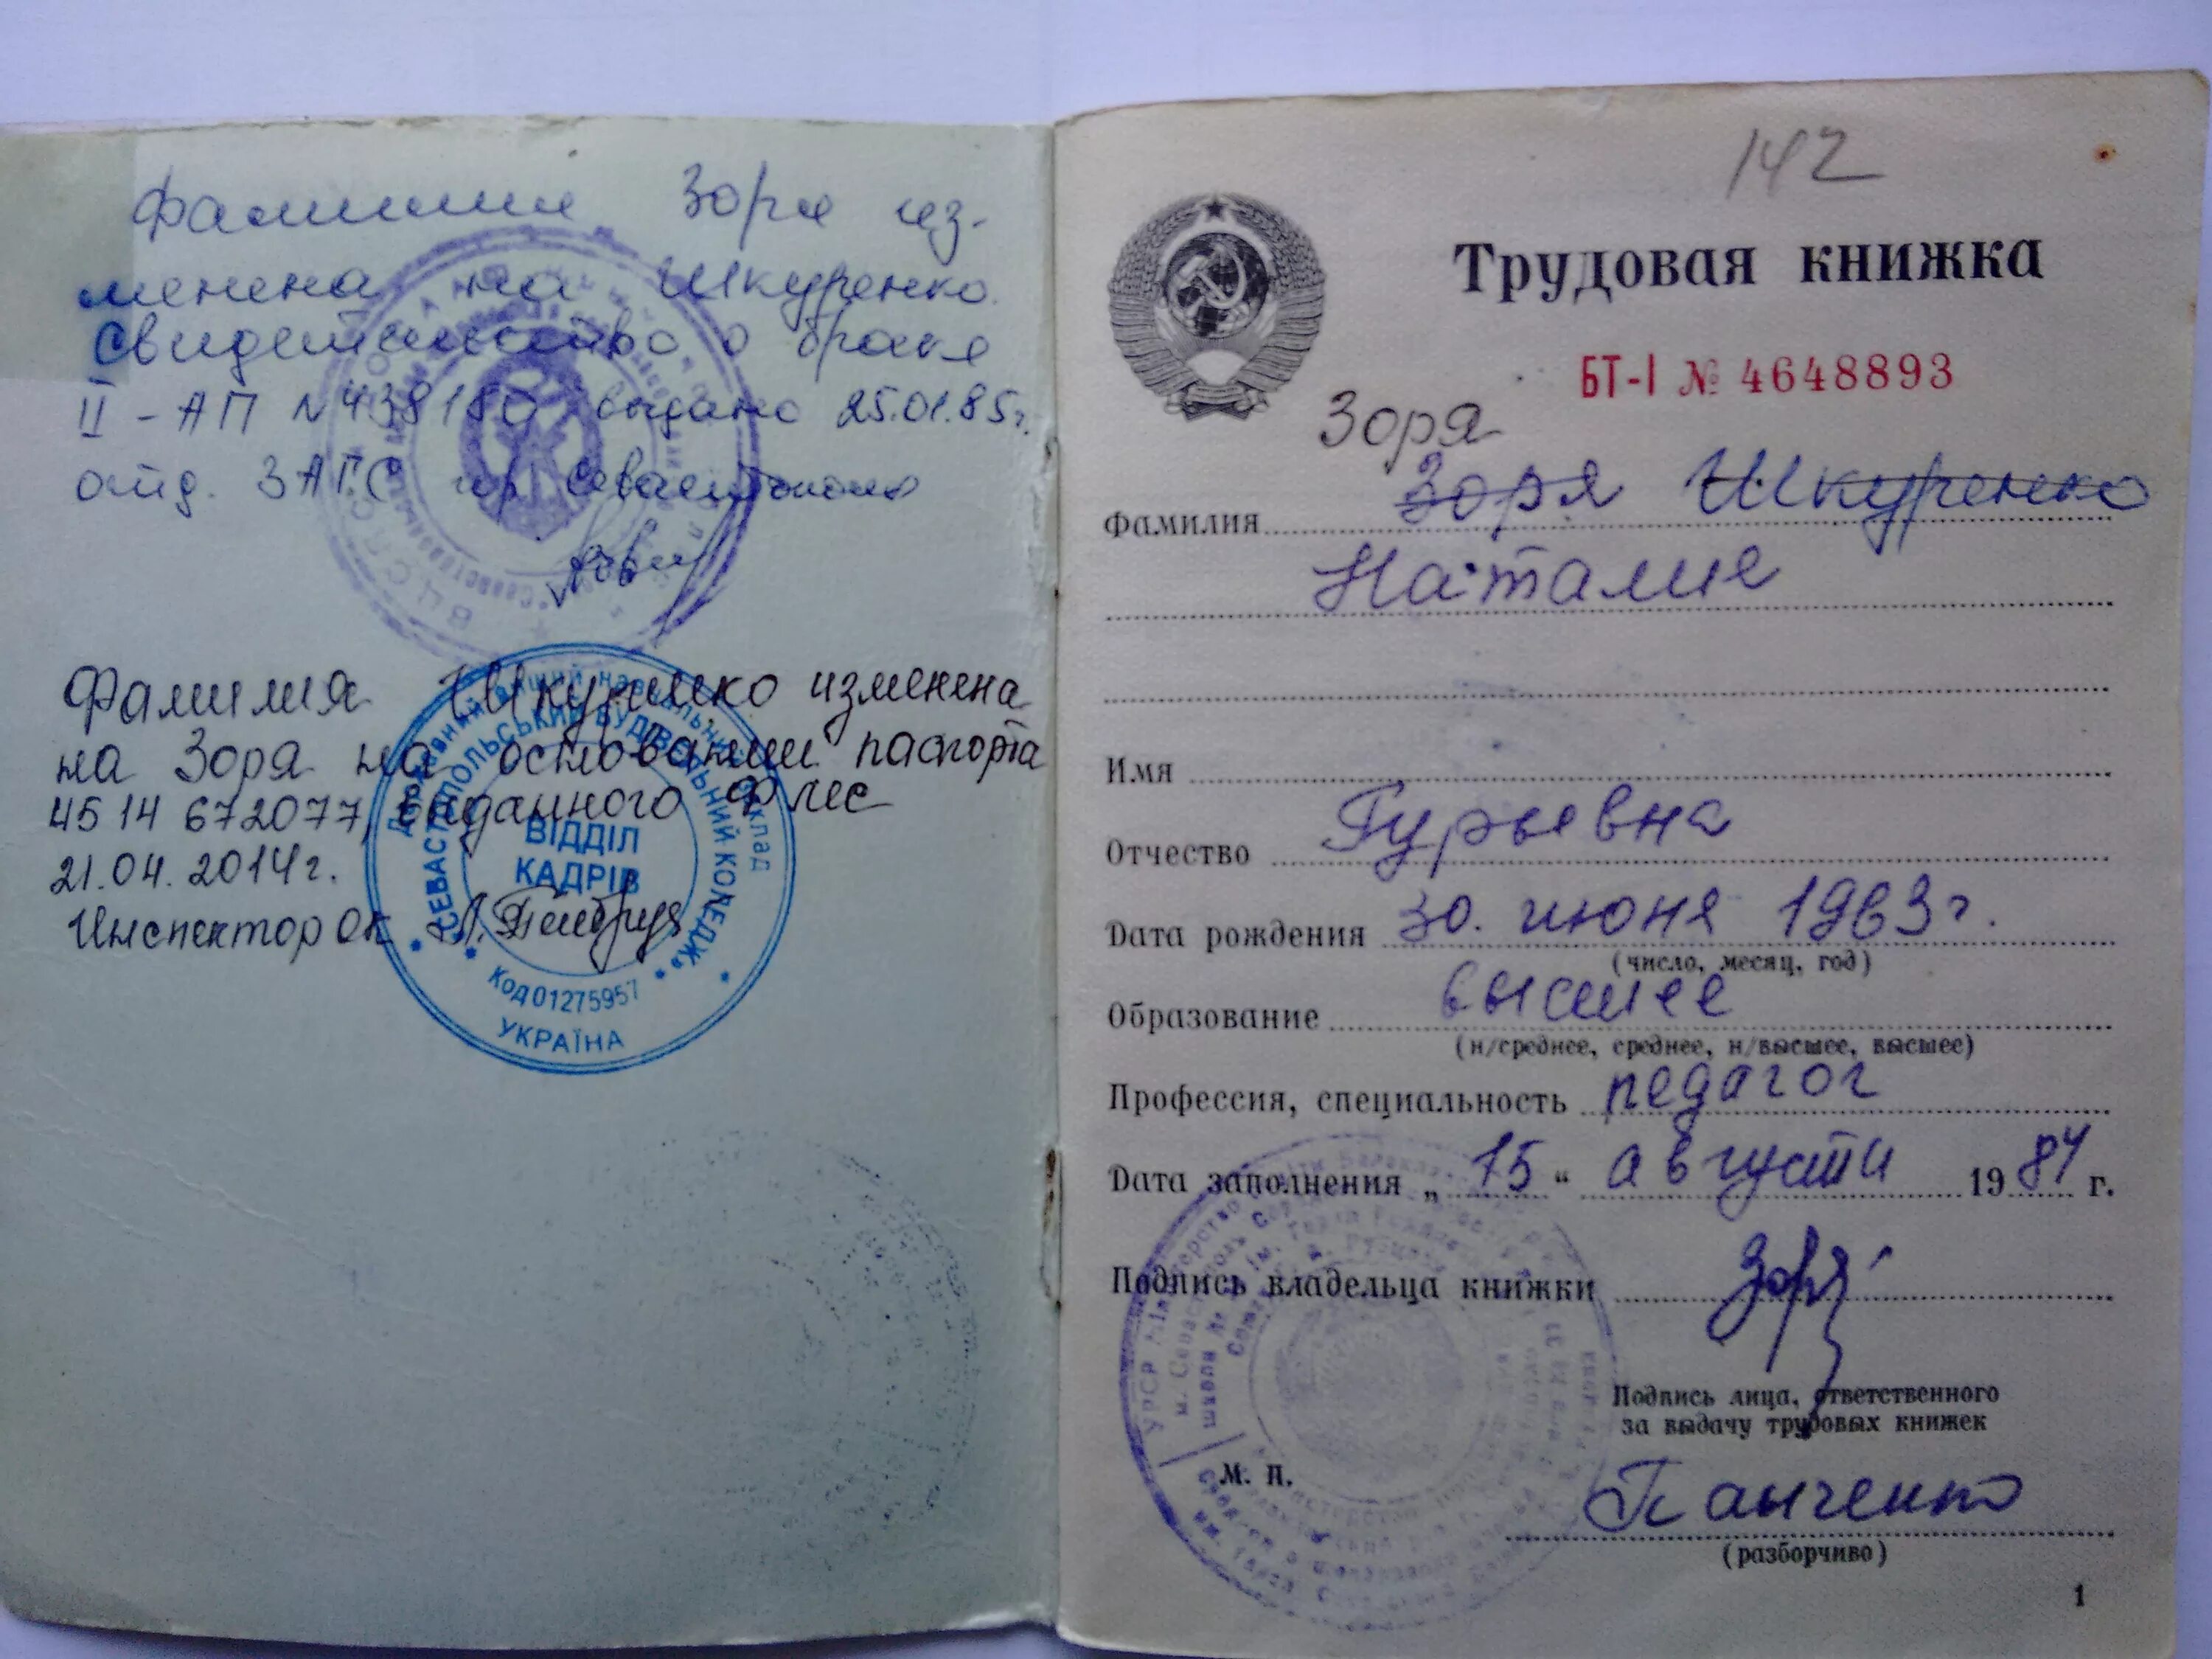 Фамилия Зоря из-
менена на Шкуренко.
Свидетельство о браке
II - АП № 438180 выдано 25.01.85г.
отд. ЗАГС гор. Севастополя
Фамилия Шкуренко изменена
на Зоря на основании паспорта
45 14 672077, выданного ФМС
21.04.2014г.
Инспектор ОК
Державний вищий навчальний заклад
«СЕВАСТОПОЛЬСЬКИЙ БУДІВЕЛЬНИЙ КОЛЕДЖ»
ВІДДІЛ
КАДРІВ
Код 01275957
УКРАЇНА
142
Трудовая книжка
БТ-I № 4648893
Зоря
Фамилия Зоря Шкуренко
Наталия
Имя
Отчество Гурьевна
Дата рождения 30. июня 1963г.
(число, месяц, год)
Образование высшее
(н/среднее, среднее, н/высшее, высшее)
Профессия, специальность педагог
Дата заполнения „ 15 “ августа 19 84 г.
Подпись владельца книжки Зоря
Подпись лица, ответственного
за выдачу трудовых книжек
М. П.
Панченко
(разборчиво)
1